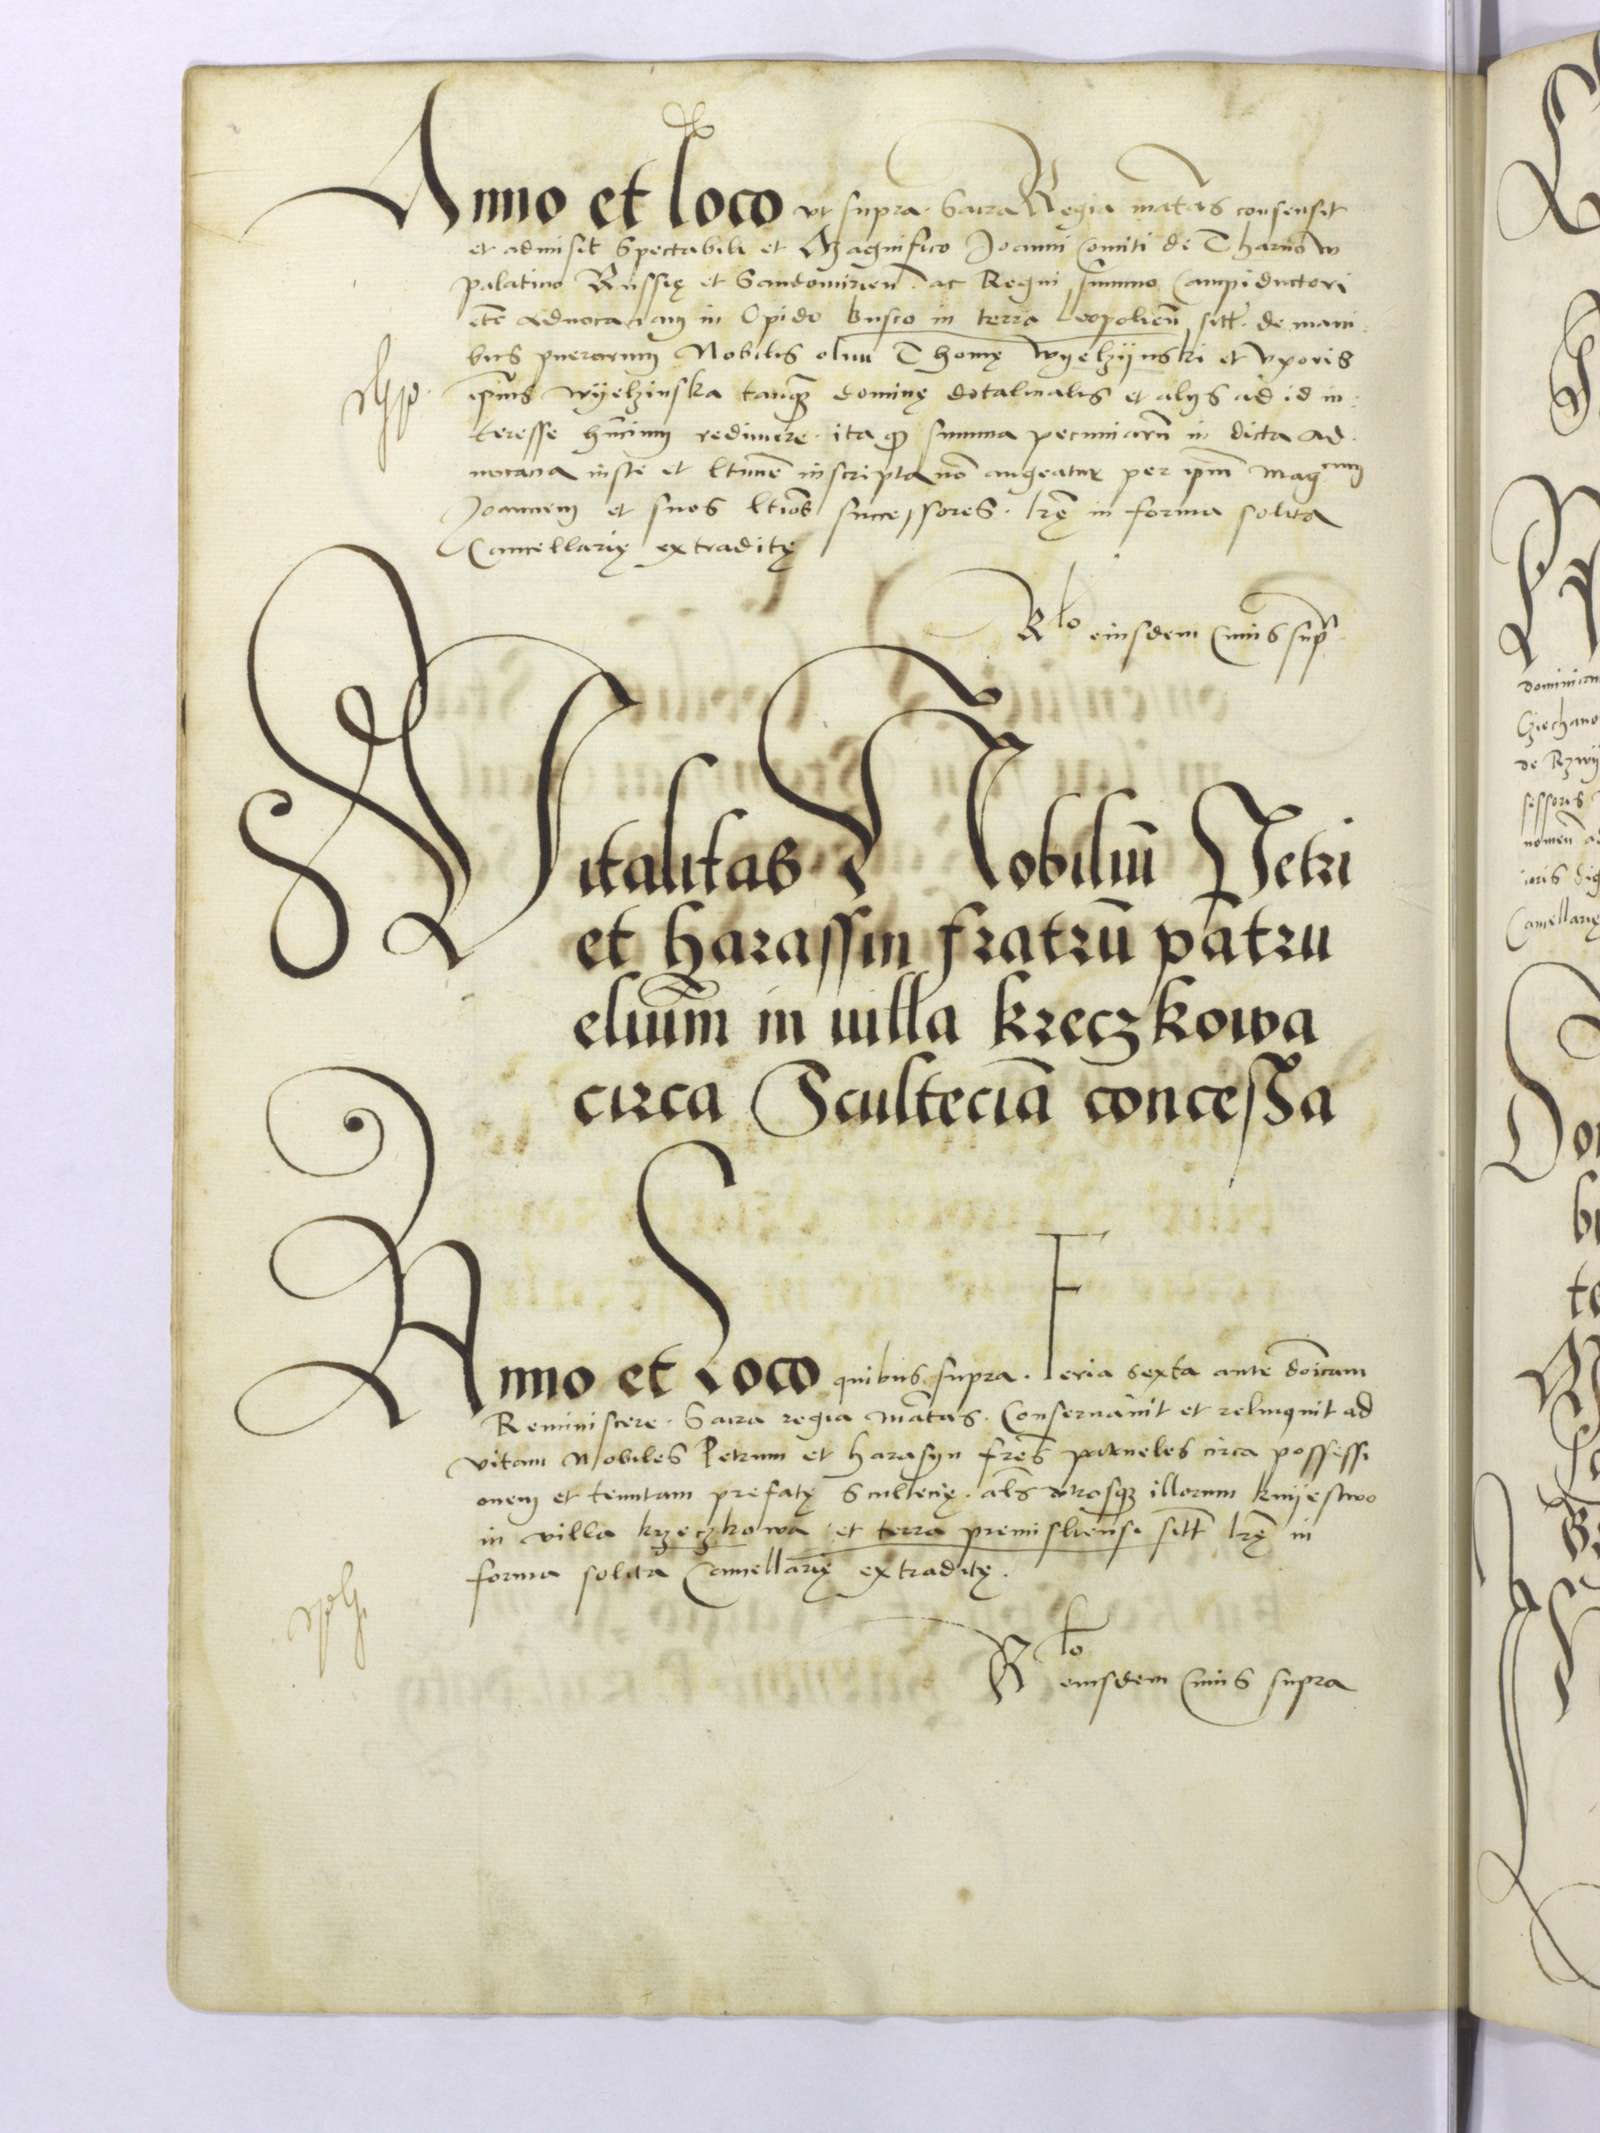 Anno et loco vt supra. Sacra Regia mat̃as consensit
et admisit Spectabili et Magnifico Joanni Comiti de Tharnow
palatino Russię et Sandomirieñ. ac Regni summo Campiductori
advocaciam in Opido Busco in terra Leopolieñ sitt̃. de mani
bus puerorum Nobilis olim Thomę Wyelzÿnski et vxoris
ip̃ius Wÿelzinska tanq̃ꝫ dominę dotalitialis et alÿs ad id in
teresse hñcium redimere. ita ꝙ summa pecuniarũ in dicta ad
uocacia iuste et ltimẽ inscripta nõ augeatur per ip̃m Mag^cum
Joannem et suos ltiõs successores. lr̃ę in forma solita
Cancellarię extraditę
R^lo eiusdem Cuius sup^a
Vitalitas Nobiliũ Petri
et harassin fratrũ patru
eliũm in uilla kreczkowa
circa Sculteciã concessa
Anno et Loco quibus supra. Feria sexta ante doĩcam
Reminiscere. Sacra regia mat̃as. Conseruauit et relinquit ad
vitam Nobiles Petrum et harasyn fr̃es patrueles circa possessi
onem et tenutam prefatę Scultecię. als̃ vtrosqꝫ illorum knÿestwo
in villa krzeczkowa et terra premisliensi sitt̃ lr̃ę in
forma solita Cancellarię extraditę.
R^lo eiusdem Cuius supra